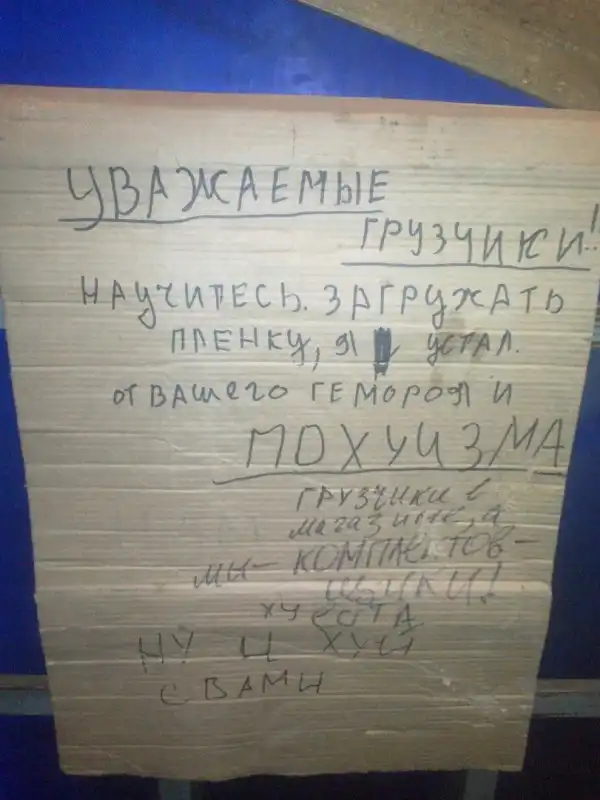 УВАЖАЕМЫЕ
ГРУЗЧИКИ!
НАУЧИТЕСЬ. ЗАГРУЖАТЬ
ПЛЕНКУ, Я УСТАЛ.
ОТ ВАШЕГО ГЕМОРОЯ И
ПОХУИЗМА
ГРУЗЧИКИ в
магазине, а
МЫ— КОМПЛЕКТОВ-
ЩИКИ!
ХУ ЕСТА
НУ И ХУЙ
С ВАМИ